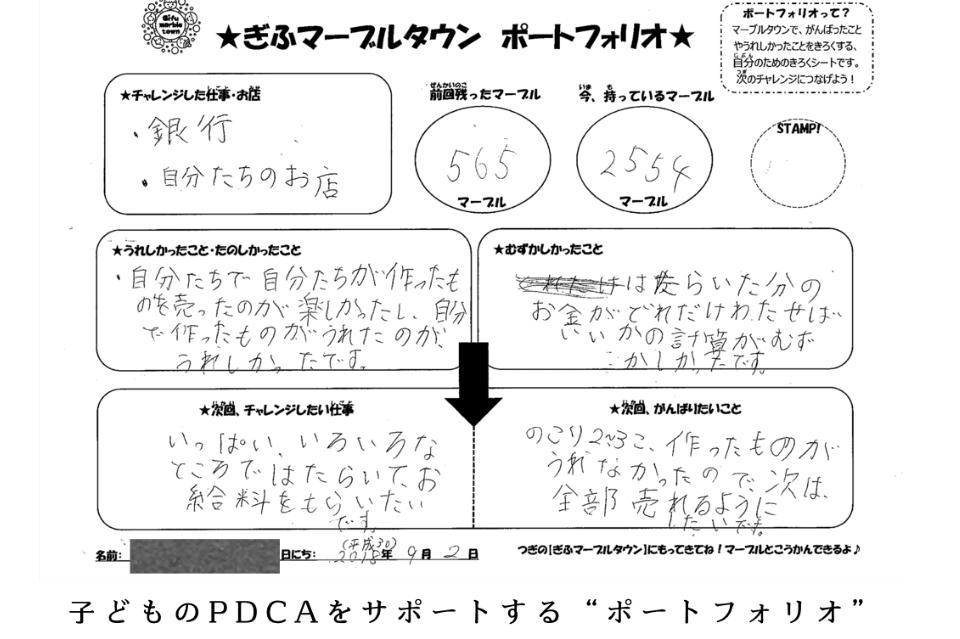 Gifu
marble
town
★ぎふマーブルタウン ポートフォリオ★
ポートフォリオって?
マーブルタウンで、がんばったこと
やうれしかったことをきろくする、
自分のためのきろくシートです。
次のチャレンジにつなげよう!
★チャレンジした仕事・お店
・銀行
・自分たちのお店
前回残ったマーブル
565
マーブル
今、持っているマーブル
2554
マーブル
STAMP!
★うれしかったこと・たのしかったこと
・自分たちで自分たちが作ったも
のを売ったのが楽しかったし、自分
で作ったものがうれたのが、
うれしかったです。
★むずかしかったこと
はたらいた分の
お金がどれだけわたせば
いいかの計算がむず
かしかったです。
★次回、チャレンジしたい仕事
いっぱい、いろいろな
ところではたらいて、お
給料をもらいたい
です。
★次回、がんばりたいこと
のこり2~3こ、作ったものが
うれなかったので、次は、
全部売れるように
したいです。
名前:
日にち:
(平成30)
2018年 9月 2日
つぎの[ぎふマーブルタウン]にもってきてね!マーブルとこうかんできるよ♪
子どものPDCAをサポートする“ポートフォリオ”